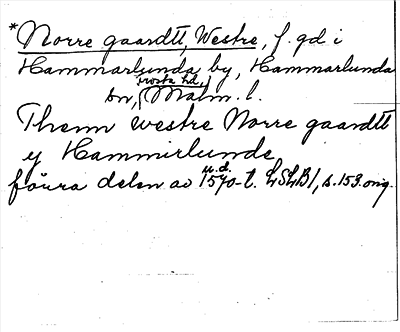 *Norre gaardtt, Westre, f. gd i
Hammarlunda by, Hammarlunda
sn, Frosta hd, Malm. l.
Thenn westre Norre gaardtt
y Hammirlunde
förra delen av u.d. 1570-t. LSLB1, s. 153. orig.